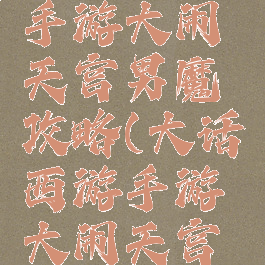 手游大闹
天宫男魔
攻略(大话
西游手游
大闹天宫